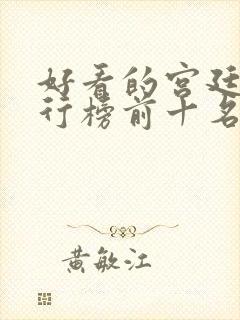 好看的宫廷
行榜前十名
黄敏江